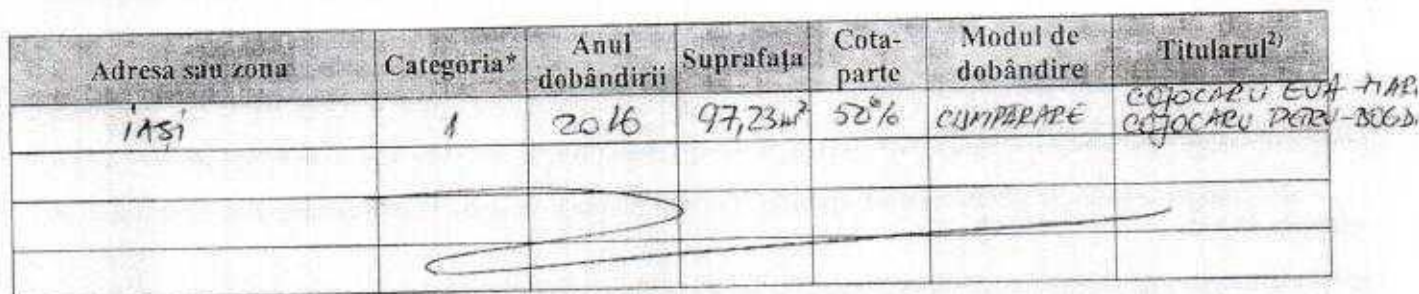 Adresa sau zona Categoria* Anul dobândirii Suprafaţa Cota-parte Modul de dobândire Titularul2)
IAŞI 1 2016 97,23m² 50% CUMPARARE COJOCARU EVA-MARI
COJOCARU PETRU-BOGD